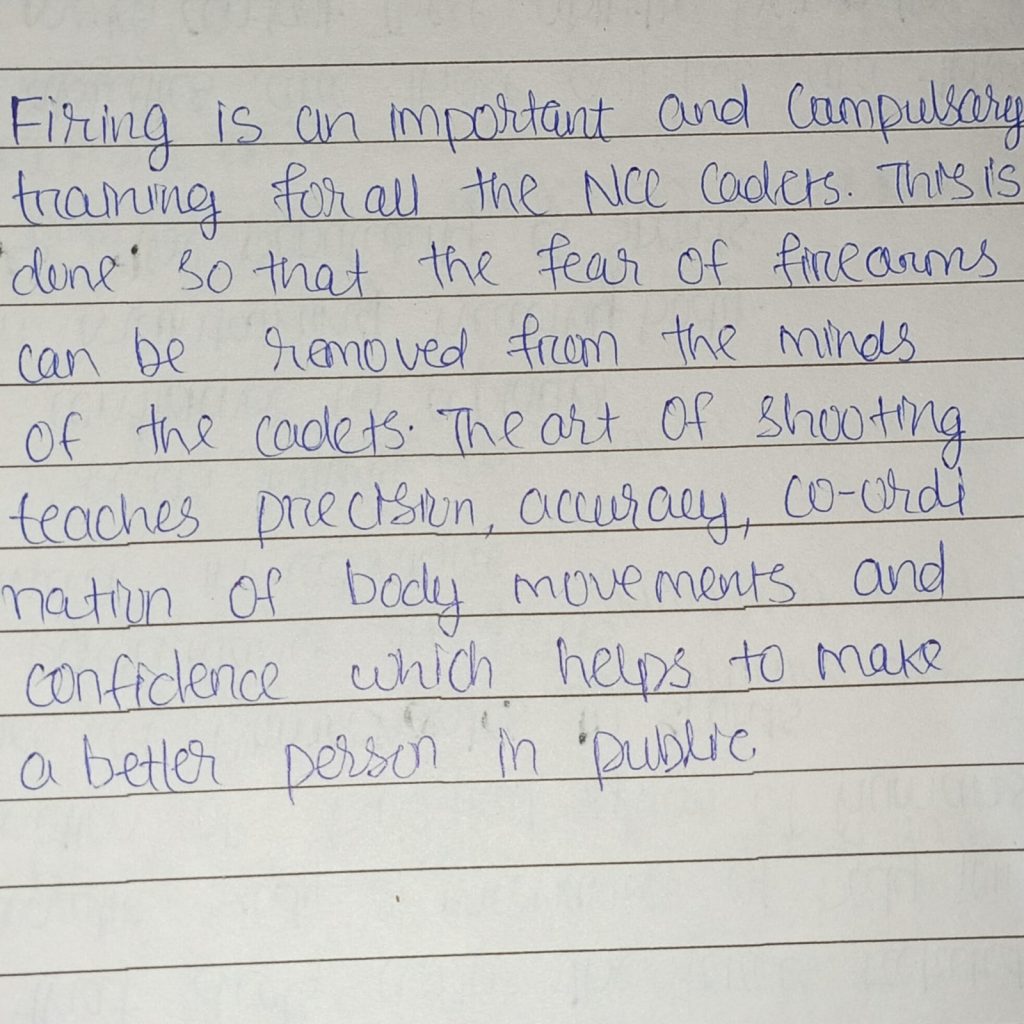 Firing is an important and Compulsary
training for all the NCC Cadets. This is
done so that the fear of firearms
can be removed from the minds
of the cadets. The art of shooting
teaches precision, accuracy, co-ordi
nation of body movements and
confidence which helps to make
a better person in public